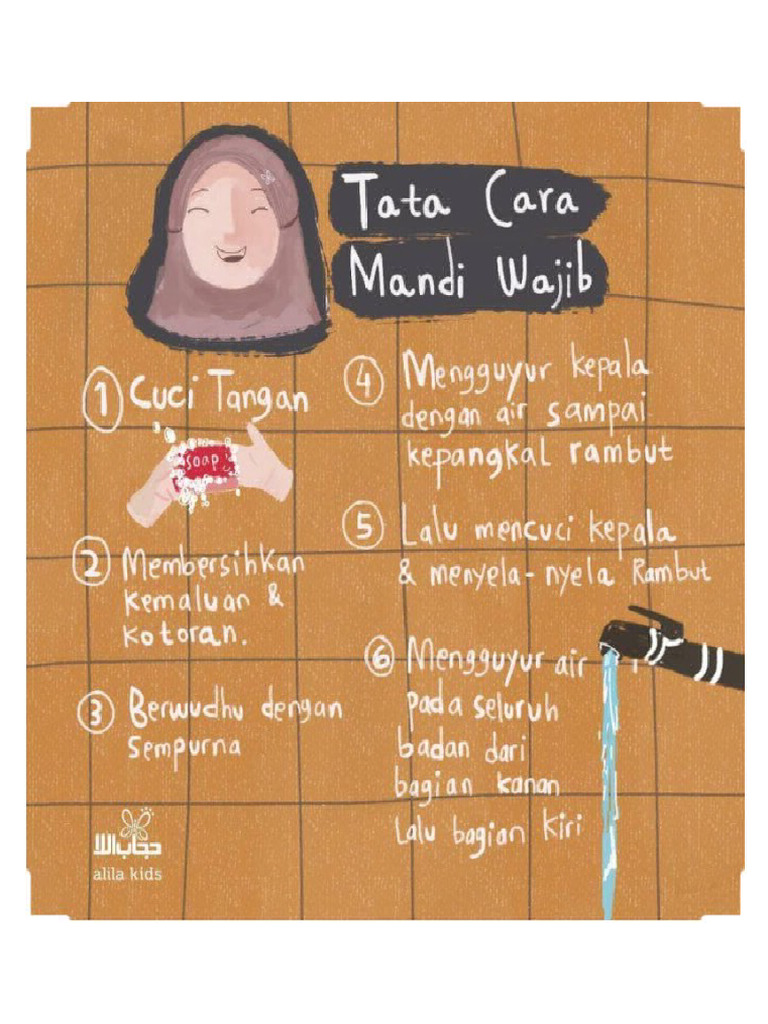 Tata Cara
Mandi Wajib
1 Cuci Tangan
soap
2 Membersihkan
kemaluan &
kotoran.
3 Berwudhu dengan
sempurna
4 Mengguyur kepala
dengan air sampai
kepangkal rambut
5 Lalu mencuci kepala
& menyela-nyela Rambut
6 Mengguyur air
pada seluruh
badan dari
bagian kanan
lalu bagian kiri
حجاب اللا
alila kids